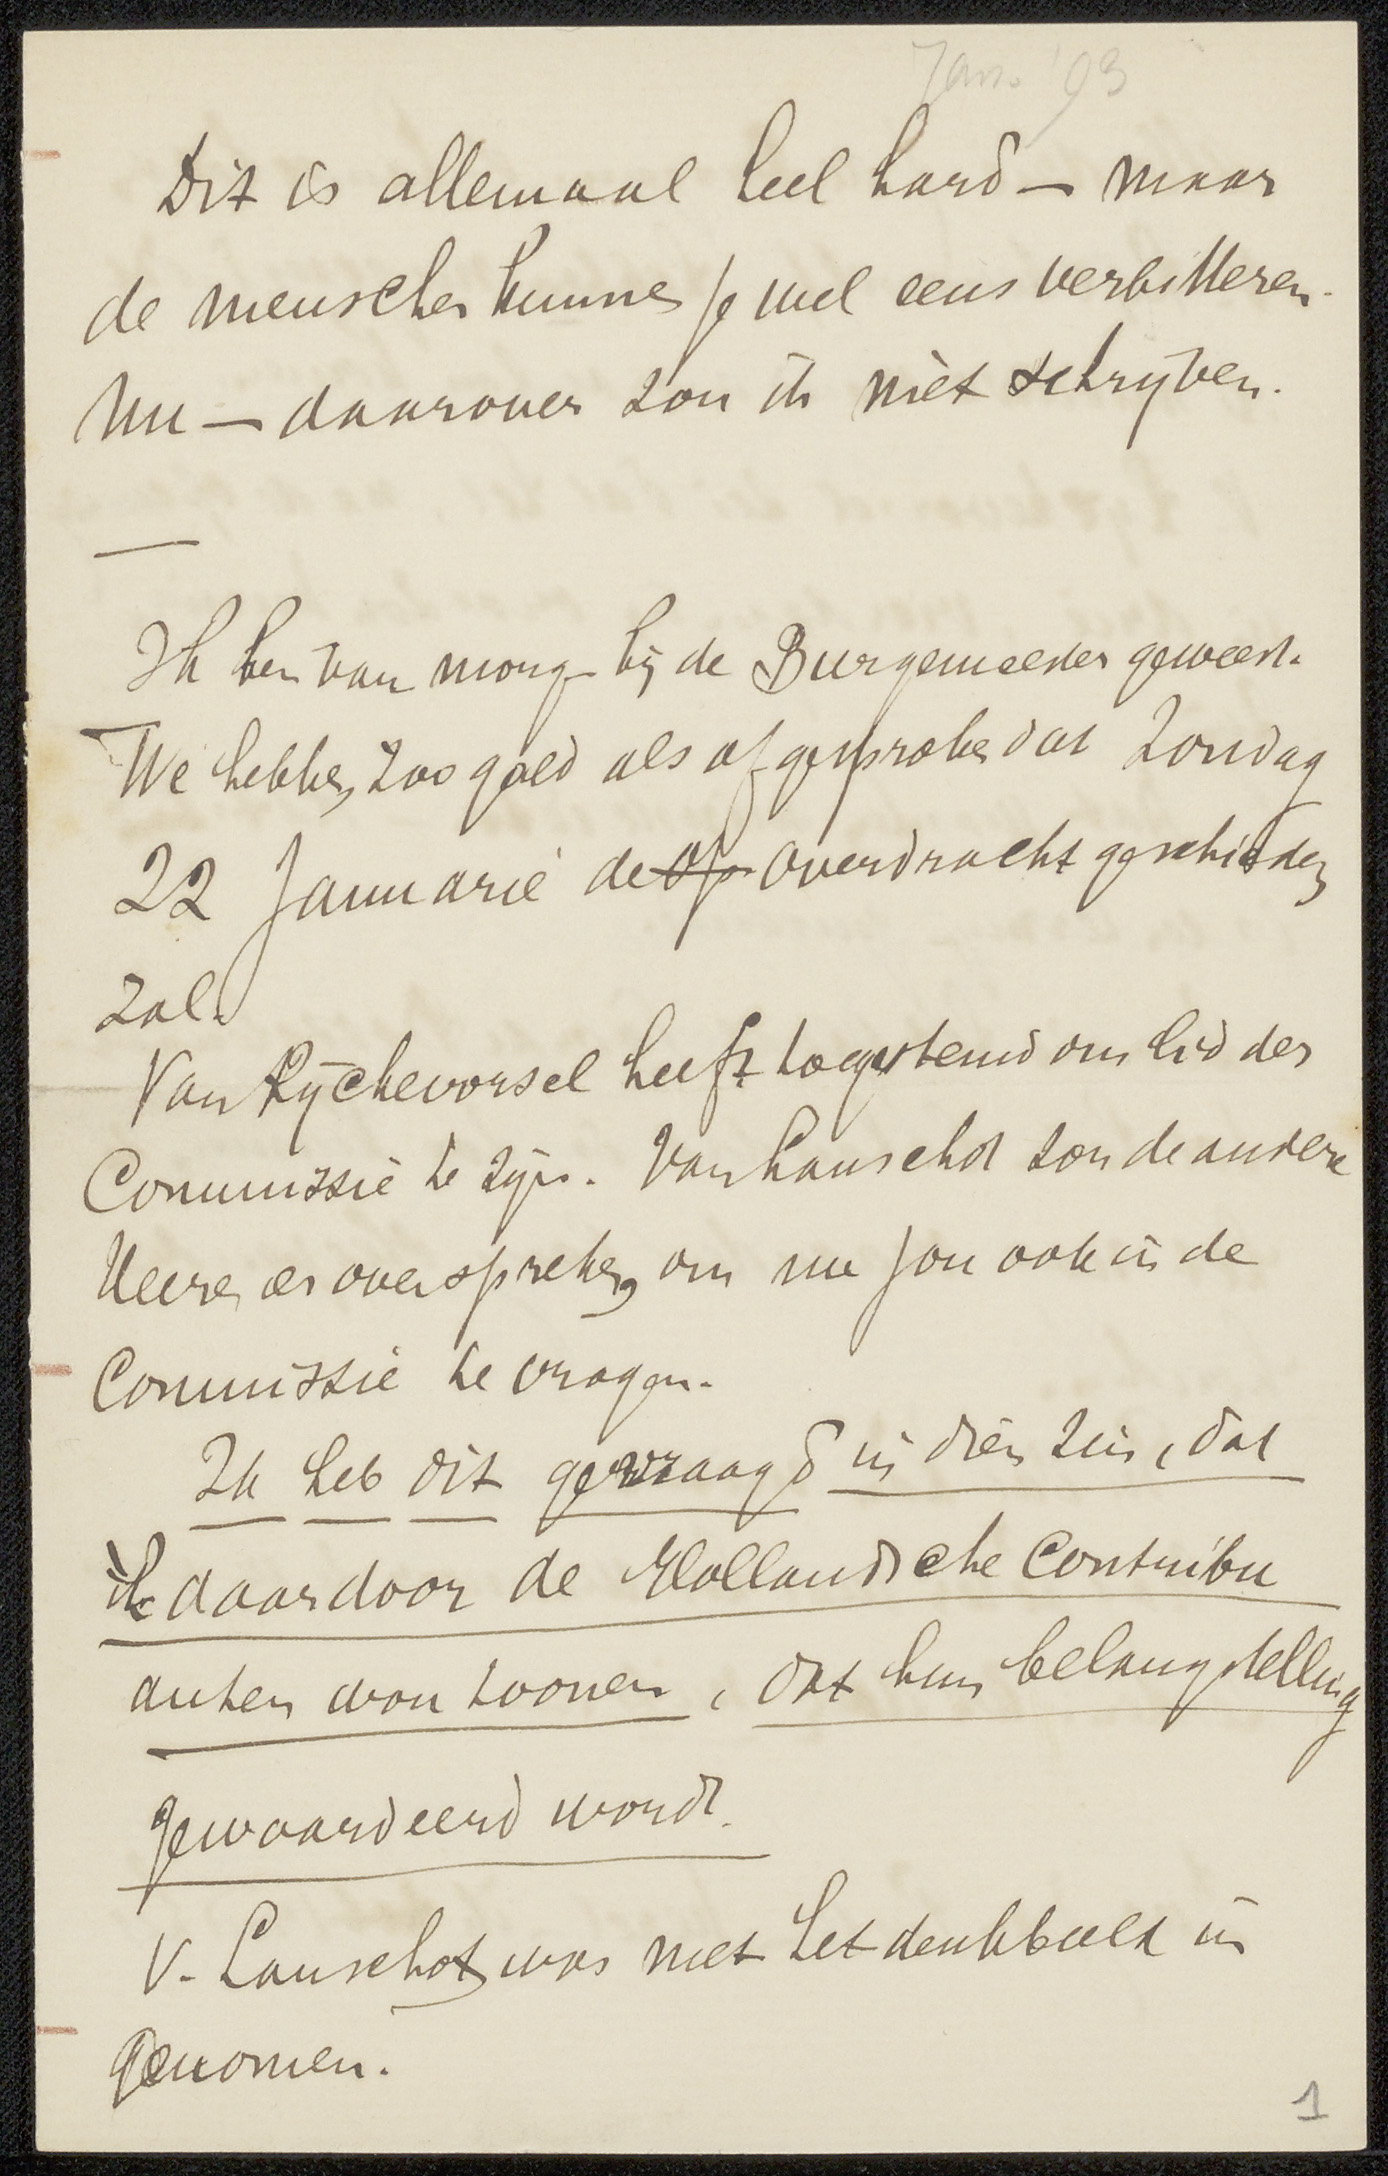 Jan. '93
Dit is allemaal heel hard — maar
de menschen kunnen je wel eens verbitteren.
Nu — daarover zou ik niet schrijven.
—
Ik ben van morg. bij de Burgemeester geweest.
We hebben zoo goed als afgesproken dat Zondag
22 Januarie de op overdracht geschieden
zal.
Van Rijckevorsel heeft toegestemd om lid der
Commissie te zijn. Van Lanschot zou de andere
Heeren er over spreken, om nu jou ook in de
Commissie te vragen.
Ik heb dit gevraagd in dien zin, dat
ik daardoor de Hollandsche Contribu
anten wou toonen, dat hun belangstelling
gewaardeerd wordt.
V. Lanschot was met het denkbeeld in
genomen.
1